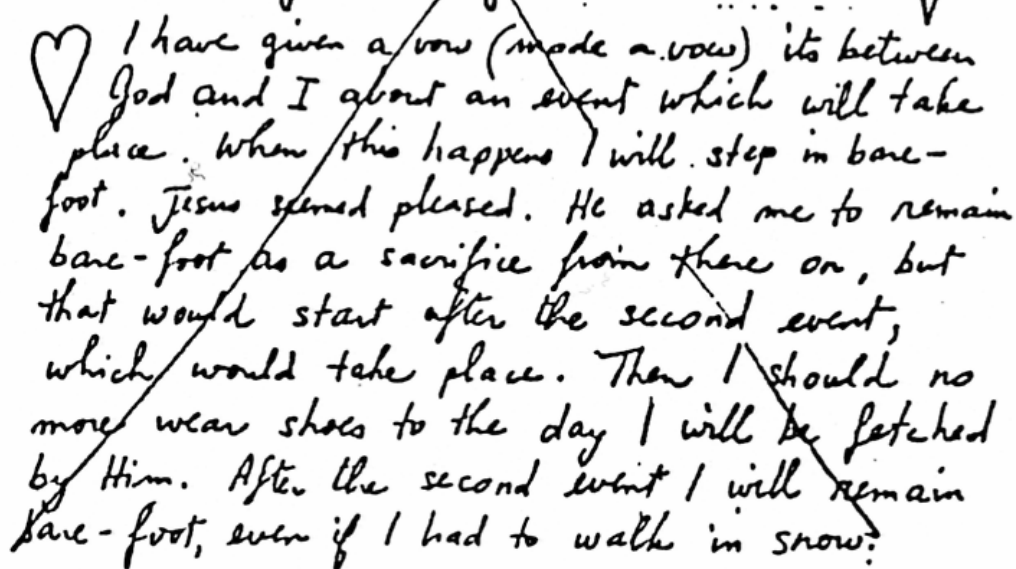 I have given a vow (made a vow) its between
God and I about an event which will take
place. When this happens I will step in bare-
foot. Jesus seemed pleased. He asked me to remain
bare-foot as a sacrifice from there on, but
that would start after the second event,
which would take place. Then I should no
more wear shoes to the day I will be fetched
by Him. After the second event I will remain
bare-foot, even if I had to walk in snow.